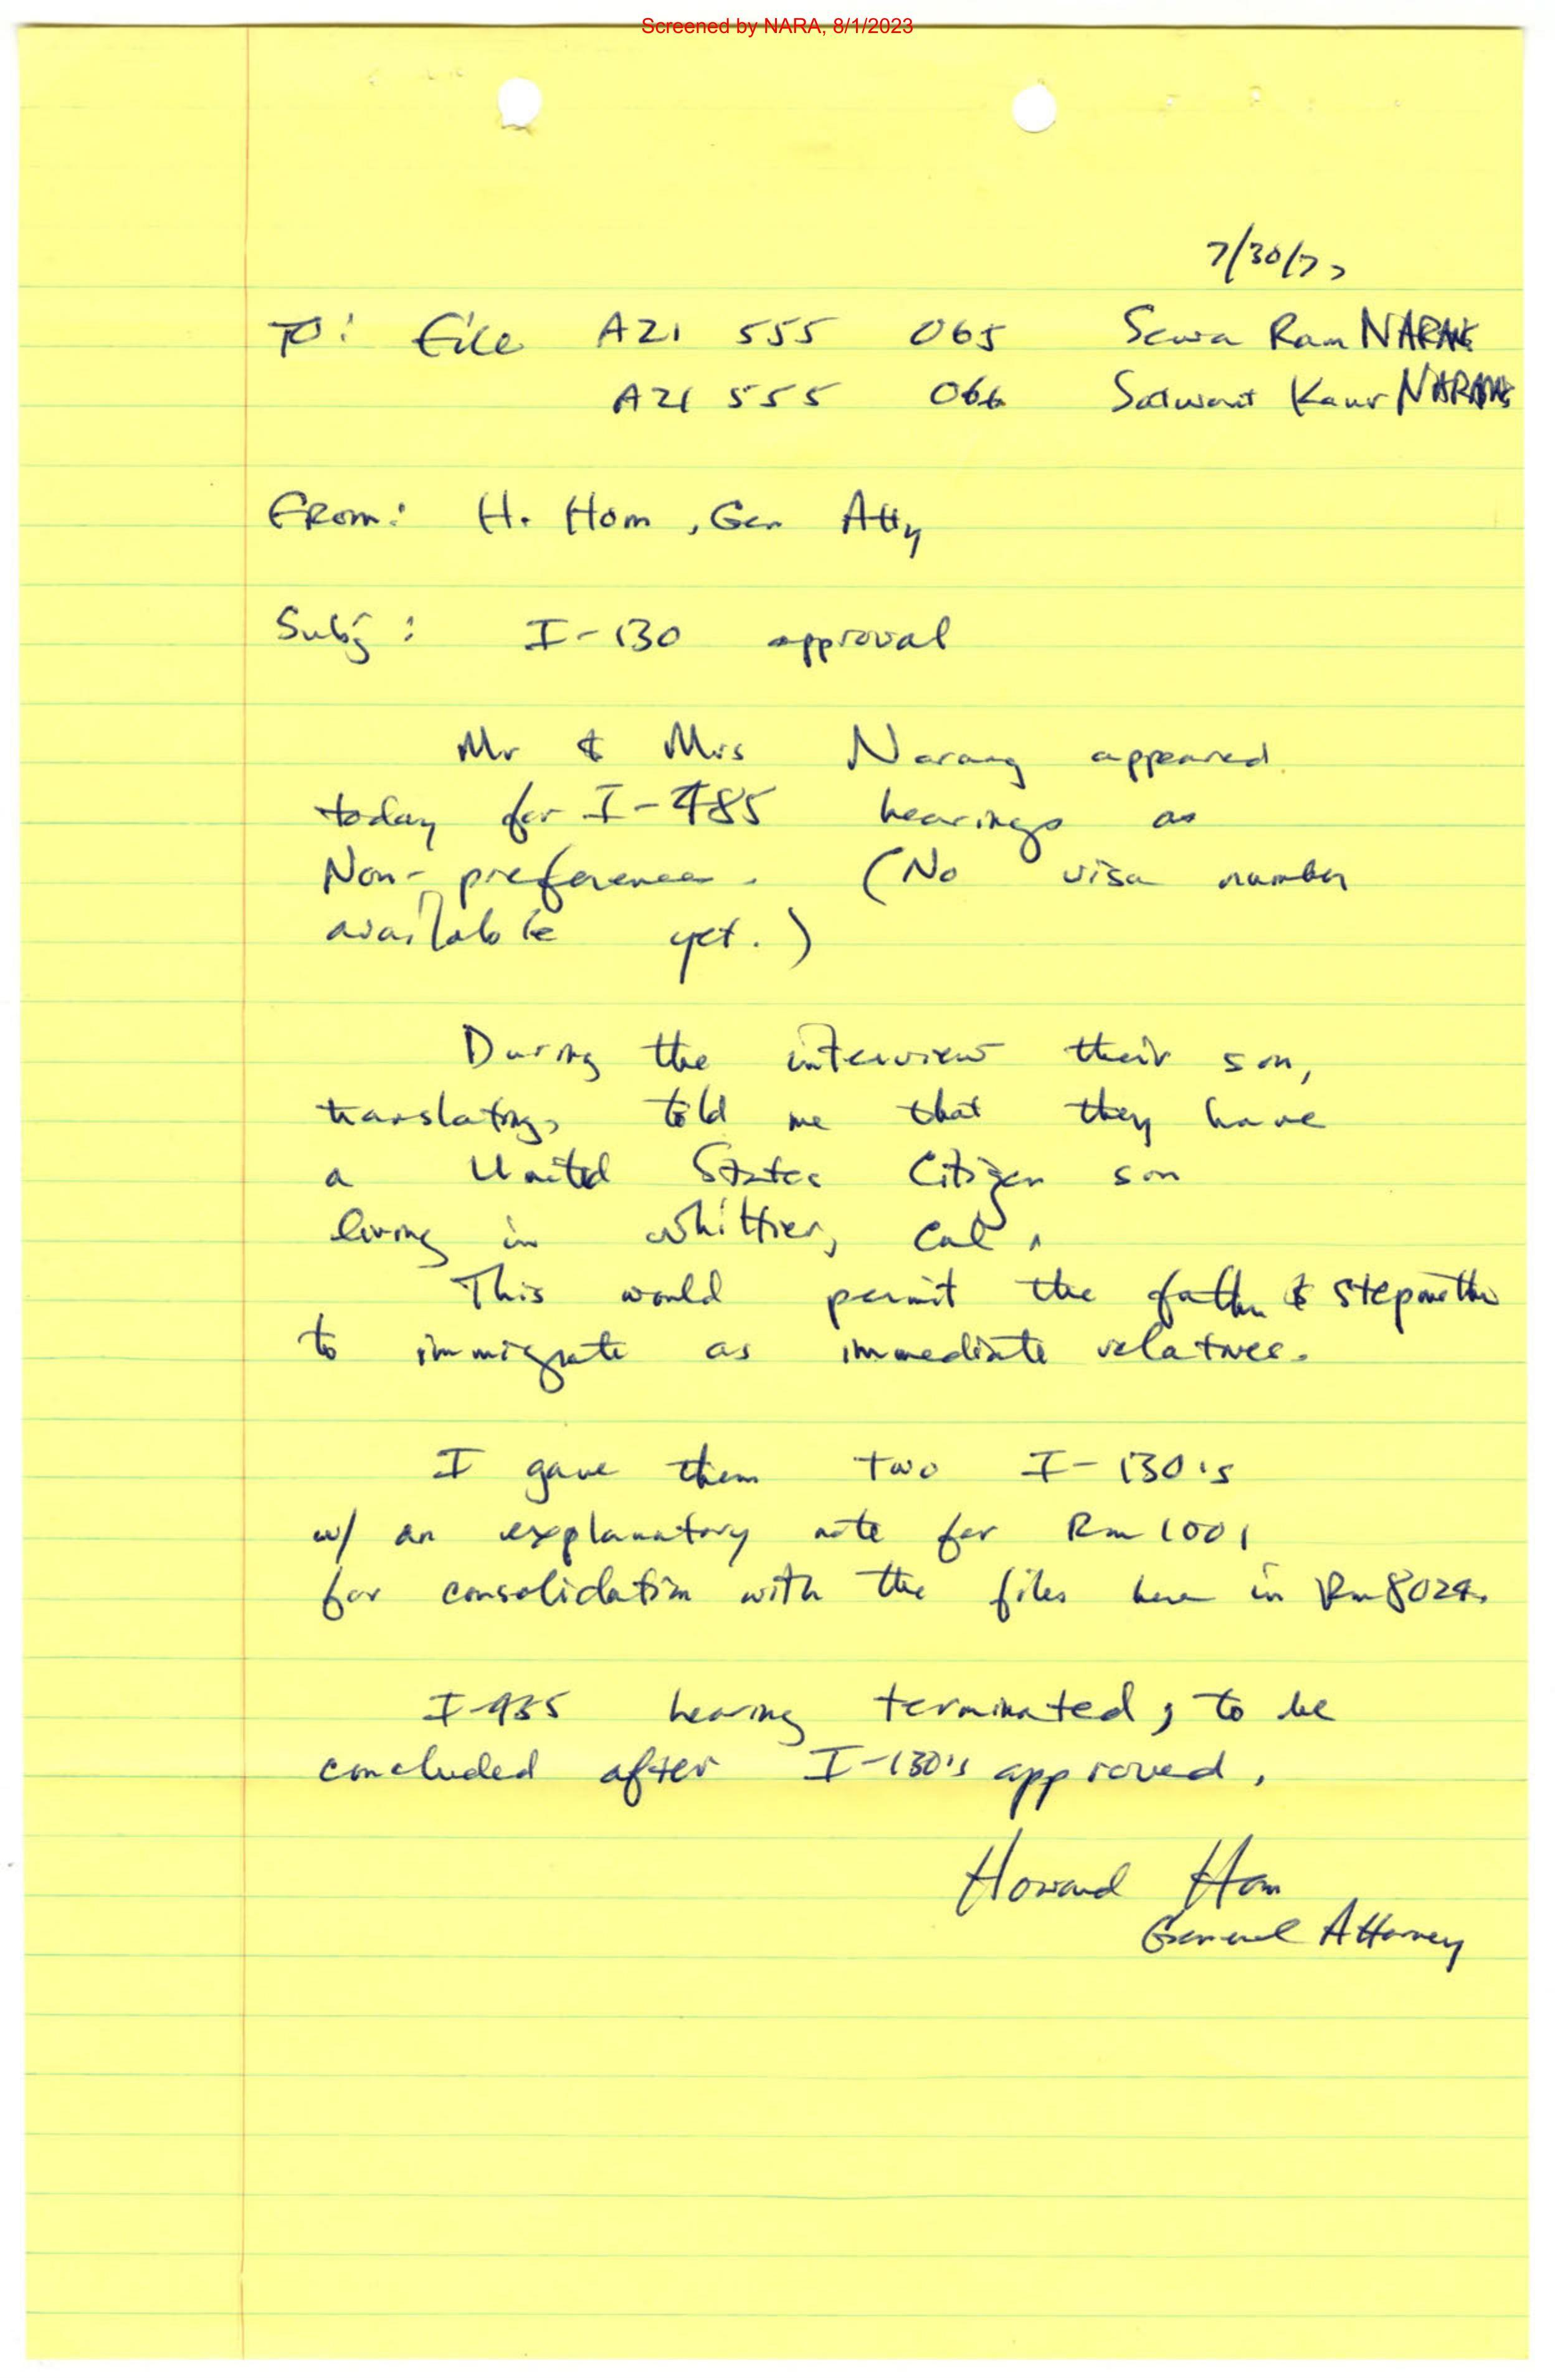 Screened by NARA, 8/1/2023
7/30/77
To: File A21 555 065 Sewa Ram NARANG
A21 555 066 Satwant Kaur NARANG
From: H. Hom, Gen Atty
Subj: I-130 approval
Mr & Mrs Narang appeared
today for I-485 hearings as
Non-preference. (No visa number
available yet.)
During the interview their son,
translating, told me that they have
a United States Citizen son
living in Whittier, Cal.
This would permit the father & stepmother
to immigrate as immediate relatives.
I gave them two I-130's
w/ an explanatory note for Rm 1001
for consolidation with the files here in Rm 8024.
I-485 hearing terminated; to be
concluded after I-130's approved.
Howard Hom
General Attorney